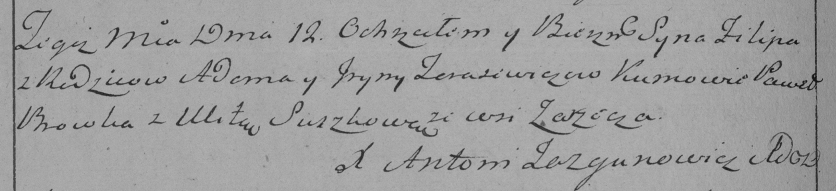 Tegoż Mca Dnia 12. Ochrzciłem y Bierzm Syna Filipa
z Rodzicow Adama y Jryny Tarasiewiczow Kumowie Paweł
Browka z Ulitą Suszkową ze wsi Zarzecza.
X Antoni Łazgunowicz